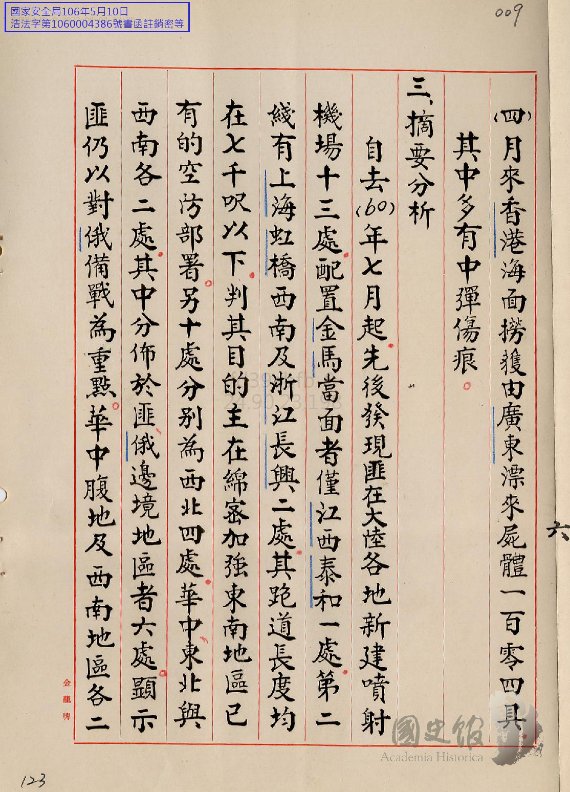 國家安全局106年5月10日
浩法字第1060004386號書函註銷密等
009
(四)月來香港海面撈獲由廣東漂來屍體一百零四具
其中多有中彈傷痕。
三、摘要分析
自去(60)年七月起先後發現匪在大陸各地新建噴射
機場十三處配置金馬當面者僅江西泰和一處第二
綫有上海虹橋西南及浙江長興二處其跑道長度均
在七千呎以下判其目的主在綿密加強東南地區已
有的空防部署另十處分別為西北四處華中東北與
西南各二處其中分佈於匪俄邊境地區者六處顯示
匪仍以對俄備戰為重點華中腹地及西南地區各二
六
金龍牌
123
國史館
Academia Historica